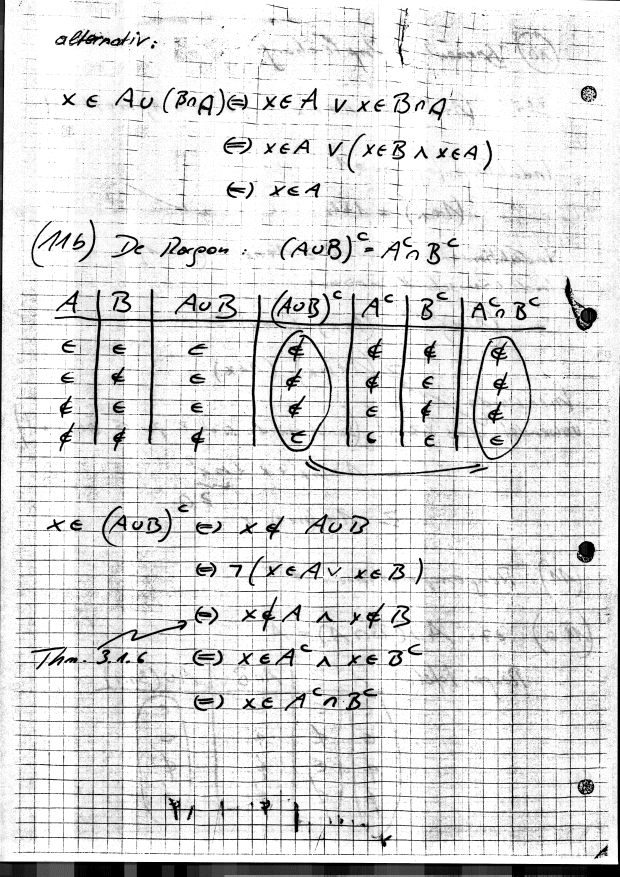 alternativ:
x ∈ A ∪ (B∩A) ⇔ x ∈ A ∨ x ∈ B∩A
⇔ x∈A ∨ (x∈B ∧ x∈A)
⇔ x∈A
(11b) De Morgan: (A∪B)^c = A^c ∩ B^c
A | B | A∪B | (A∪B)^c | A^c | B^c | A^c ∩ B^c
∈ | ∈ | ∈ | ∉ | ∉ | ∉ | ∉
∈ | ∉ | ∈ | ∉ | ∉ | ∈ | ∉
∉ | ∈ | ∈ | ∉ | ∈ | ∉ | ∉
∉ | ∉ | ∉ | ∈ | ∈ | ∈ | ∈
x ∈ (A∪B)^c ⇔ x ∉ A∪B
⇔ ¬(x∈A ∨ x∈B)
⇔ x∉A ∧ x∉B
Thm. 3.1.6 ⇔ x∈A^c ∧ x∈B^c
⇔ x∈ A^c ∩ B^c